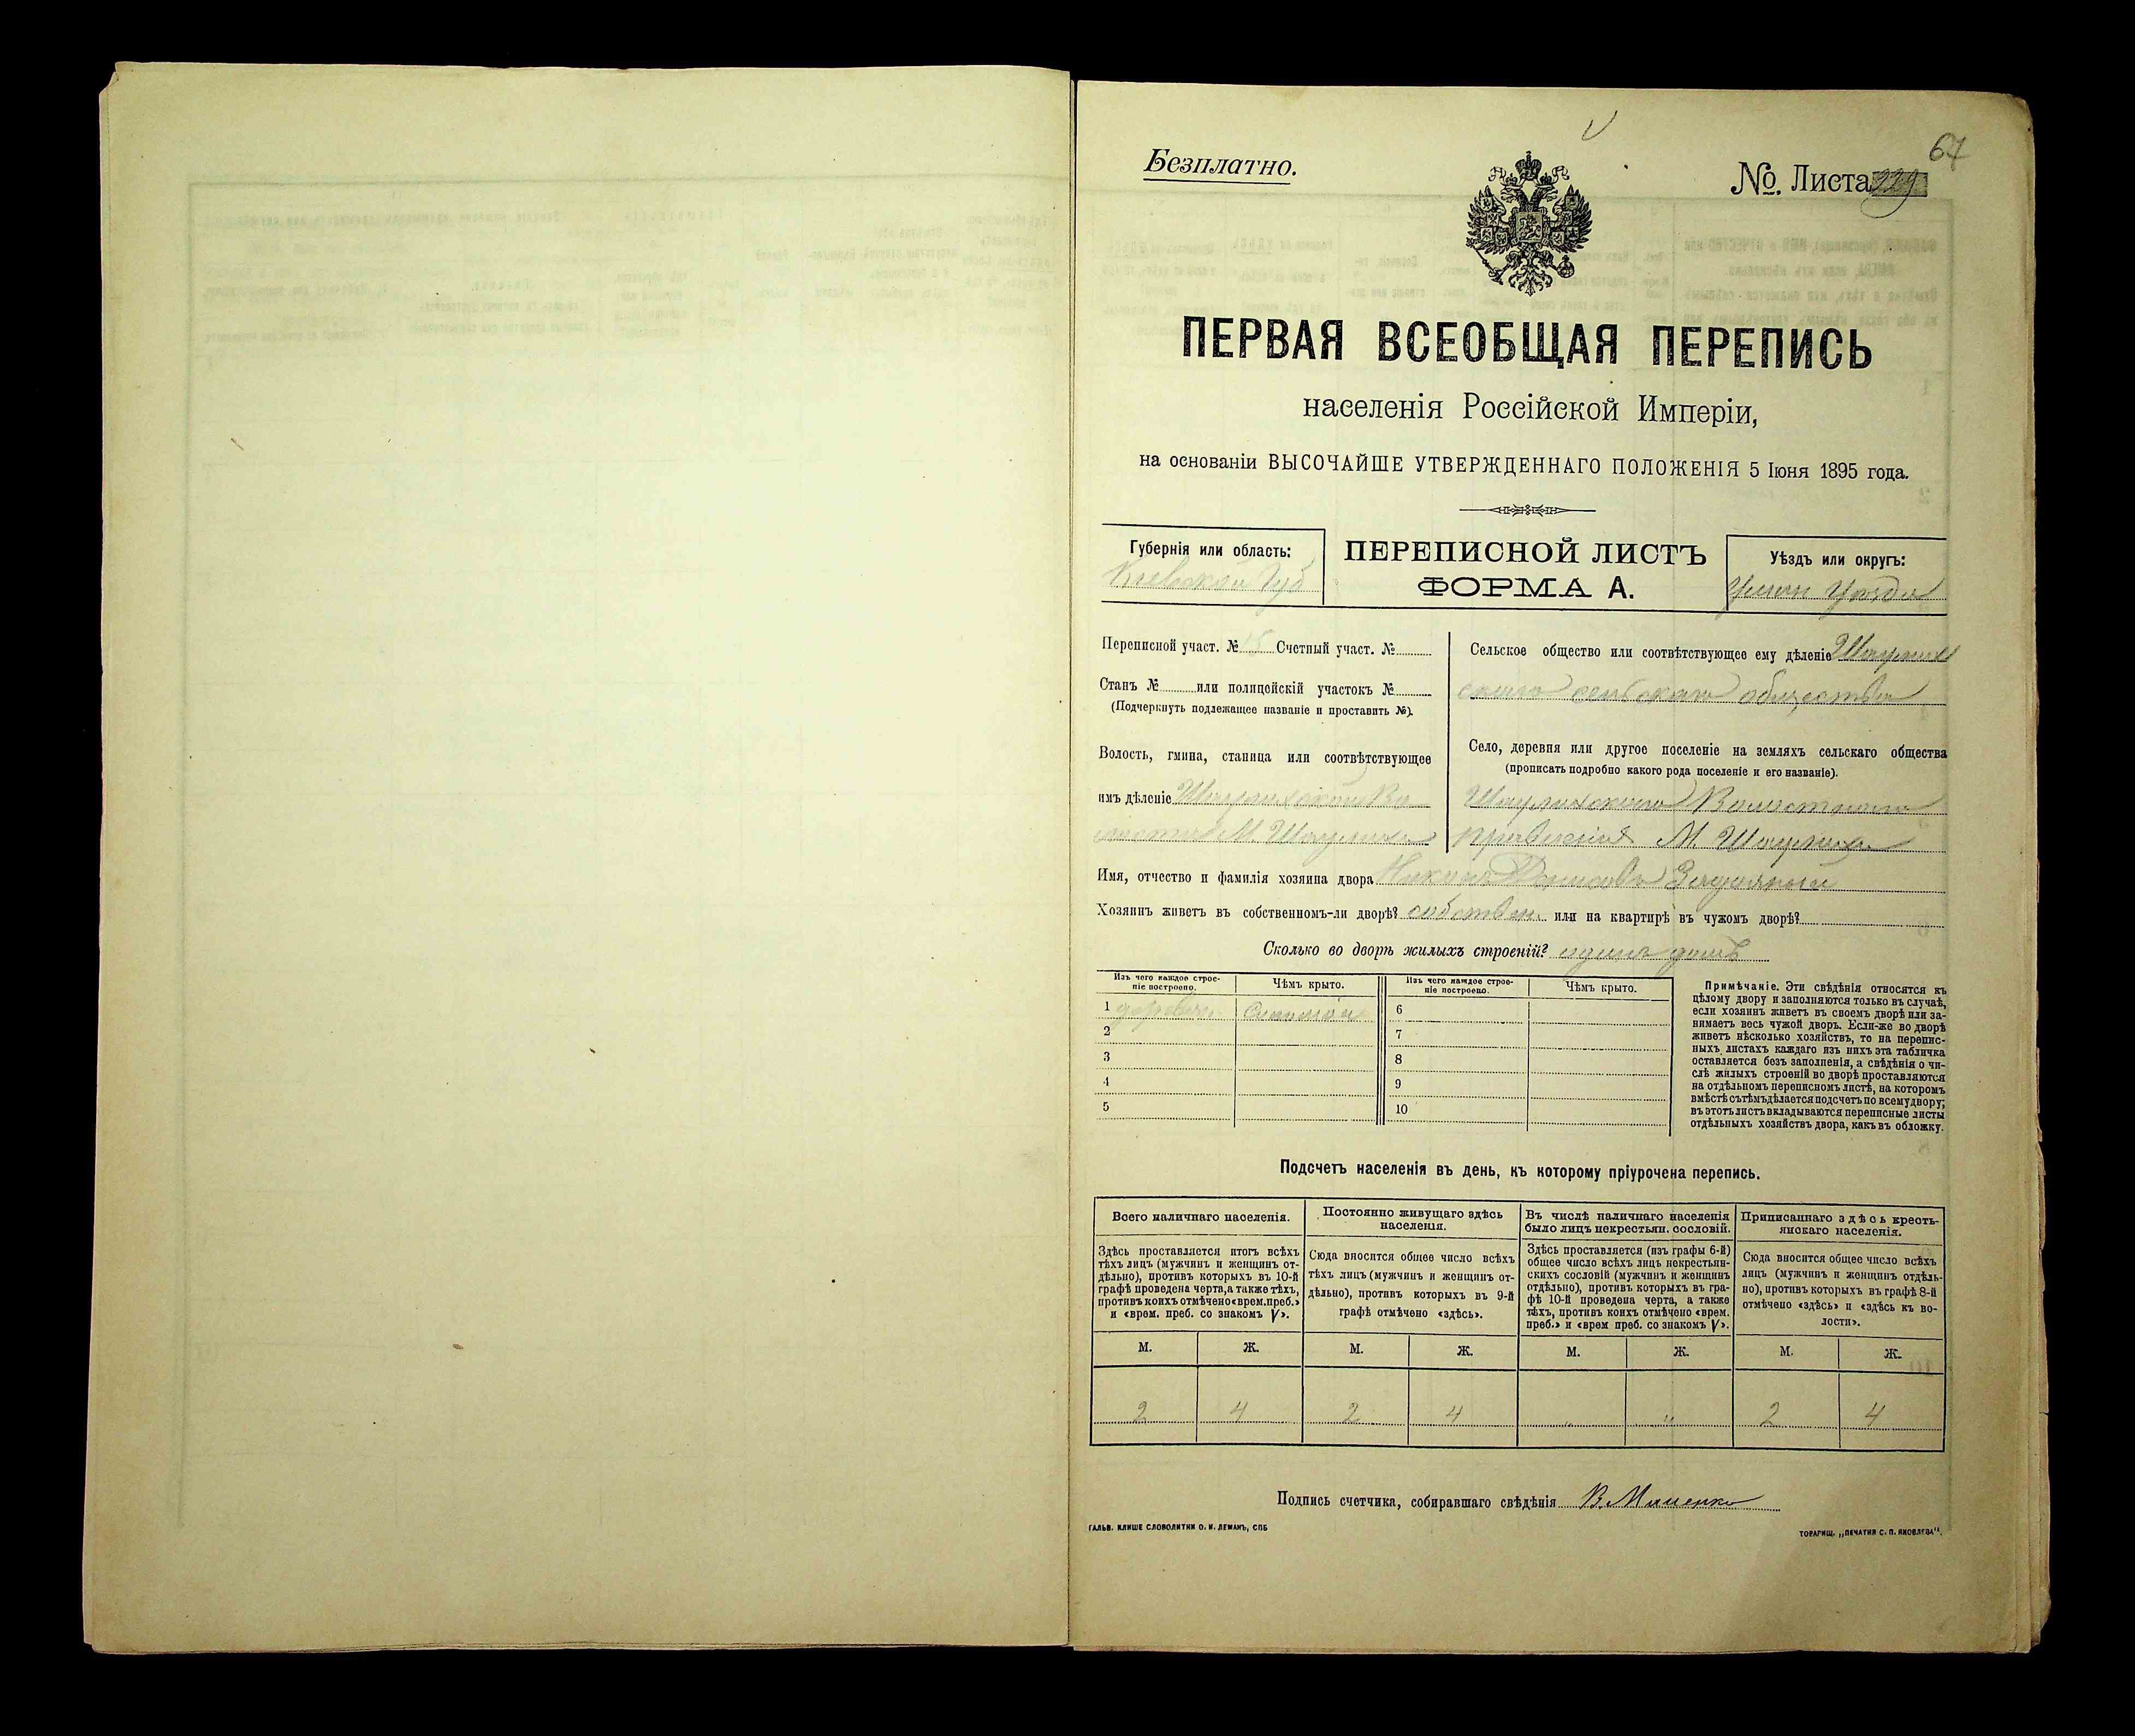 67
Безплатно.
№. Листа 229
ПЕРВАЯ ВСЕОБЩАЯ ПЕРЕПИСЬ
населенія Россійской Имперіи,
на основаніи ВЫСОЧАЙШЕ УТВЕРЖДЕННАГО ПОЛОЖЕНІЯ 5 Іюня 1895 года.
Губернія или область:
Кіевской Губ
ПЕРЕПИСНОЙ ЛИСТЪ
ФОРМА А.
Уѣздъ или округъ:
Уман Уѣзда
Переписной участ. № 15 Счетный участ. №
Станъ № или полицейскій участокъ №
(Подчеркнуть подлежащее названіе и проставить №).
Волость, гмина, станица или соотвѣтствующее
имъ дѣленіе Шаулихской Во
лости М. Шаулиха
Сельское общество или соотвѣтствующее ему дѣленіе Шаулих
скаго сельскаго общества
Село, деревня или другое поселеніе на земляхъ сельскаго общества
(прописать подробно какого рода поселеніе и его названіе).
Шаулихскаго Волостного
правленія М. Шаулиха
Имя, отчество и фамилія хозяина двора
Хозяинъ живетъ въ собственномъ-ли дворѣ? собствен. или на квартирѣ въ чужомъ дворѣ?
Сколько во дворѣ жилыхъ строеній? одинъ домъ
Изъ чего каждое строе-
ніе построено.
Чѣмъ крыто.
Изъ чего каждое строе-
ніе построено.
Чѣмъ крыто.
1 деревян. Соломою 6
2 7
3 8
4 9
5 10
Примѣчаніе. Эти свѣдѣнія относятся къ
цѣлому двору и заполняются только въ случаѣ,
если хозяинъ живетъ въ своемъ дворѣ или за-
нимаетъ весь чужой дворъ. Если-же во дворѣ
живетъ нѣсколько хозяйствъ, то на перепис-
ныхъ листахъ каждаго изъ нихъ эта табличка
оставляется безъ заполненія, а свѣдѣнія о чи-
слѣ жилыхъ строеній во дворѣ проставляются
на отдѣльномъ переписномъ листѣ, на которомъ
вмѣстѣ съ тѣмъ дѣлается подсчетъ по всему двору;
въ этотъ листъ вкладываются переписные листы
отдѣльныхъ хозяйствъ двора, какъ въ обложку.
Подсчетъ населенія въ день, къ которому пріурочена перепись.
Всего наличнаго населенія.
Здѣсь проставляется итогъ всѣхъ
тѣхъ лицъ (мужчинъ и женщинъ от-
дѣльно), противъ которыхъ въ 10-й
графѣ проведена черта, а также тѣхъ,
противъ коихъ отмѣчено «врем. преб.»
и «врем. преб. со знакомъ V».
Постоянно живущаго здѣсь
населенія.
Сюда вносится общее число всѣхъ
тѣхъ лицъ (мужчинъ и женщинъ от-
дѣльно), противъ которыхъ въ 9-й
графѣ отмѣчено «здѣсь».
Въ числѣ наличнаго населенія
было лицъ некрестьян. сословій.
Здѣсь проставляется (изъ графы 6-й)
общее число всѣхъ лицъ некрестьян-
скихъ сословій (мужчинъ и женщинъ
отдѣльно), противъ которыхъ въ гра-
фѣ 10-й проведена черта, а также
тѣхъ, противъ коихъ отмѣчено «врем.
преб.» и «врем преб. со знакомъ V».
Приписаннаго здѣсь кресть-
янскаго населенія.
Сюда вносится общее число всѣхъ
лицъ (мужчинъ и женщинъ отдѣль-
но), противъ которыхъ въ графѣ 8-й
отмѣчено «здѣсь» и «здѣсь къ во-
лости».
М. Ж. М. Ж. М. Ж. М. Ж.
2 4 2 4 " " 2 4
Подпись счетчика, собиравшаго свѣдѣнія
ГАЛЬВ. КЛИШЕ СЛОВОЛИТНИ О. И. ЛЕМАНЪ, СПБ
ТОВАРИЩ. „ПЕЧАТНЯ С. П. ЯКОВЛЕВА".